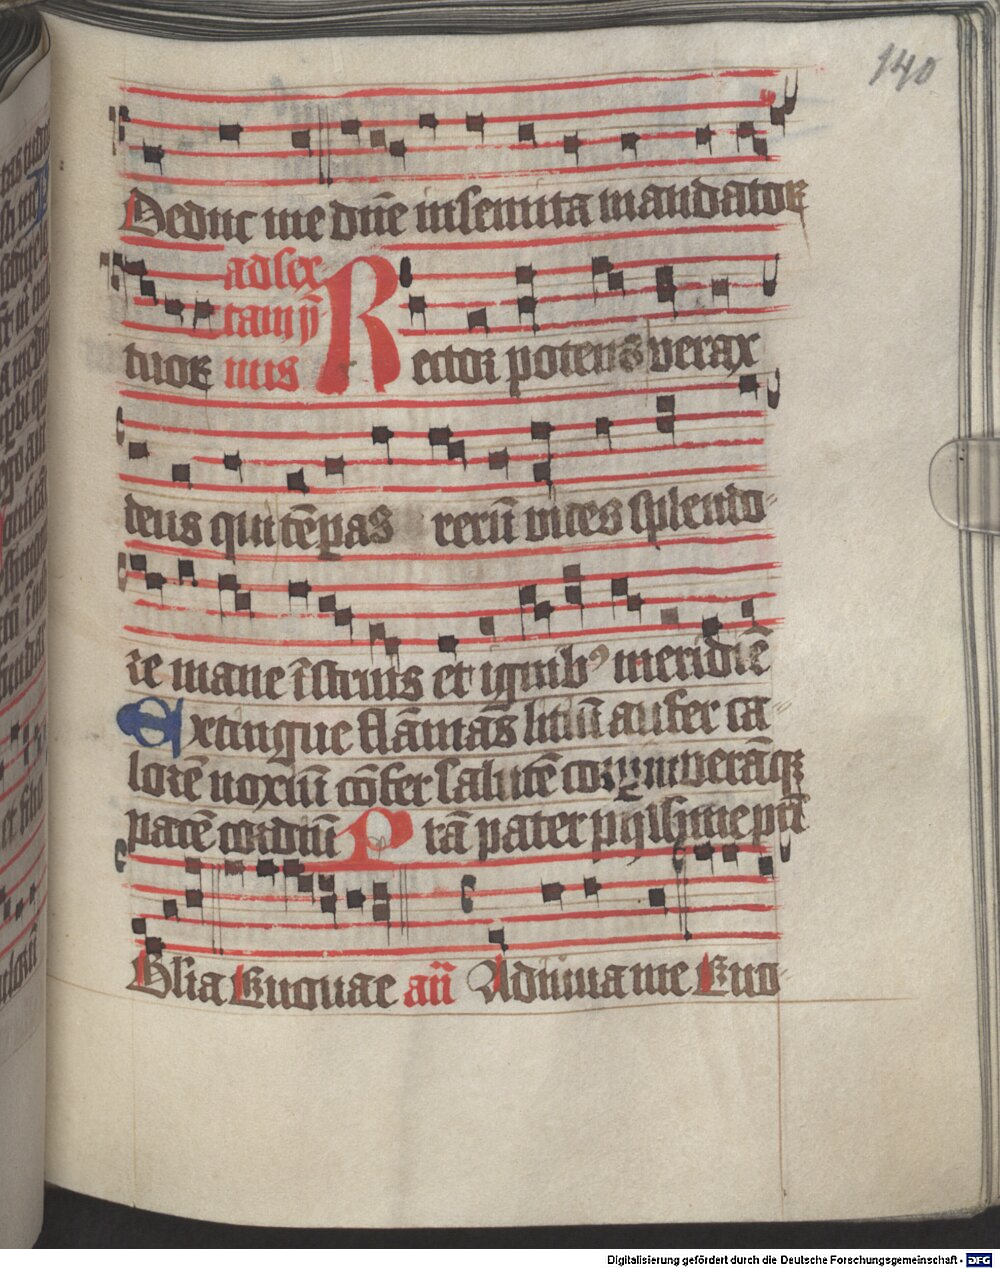 140
Deduc me dn̄e in semita mandatoꝝ
tuoꝝ ad sex
tam ẏ
mis Rector potens verax
deus qui tēꝑas rerū vices splendo-
re mane īstruis et ignibꝰ meridiē
Extingue flāmas litiū aufer ca-
lorē noxiū cōfer salutē corꝑum verāqꝫ
pacē cordiū Prā pater pijssime
Glia Euouae añ Adiuua me Euo-
Digitalisierung gefördert durch die Deutsche Forschungsgemeinschaft - DFG